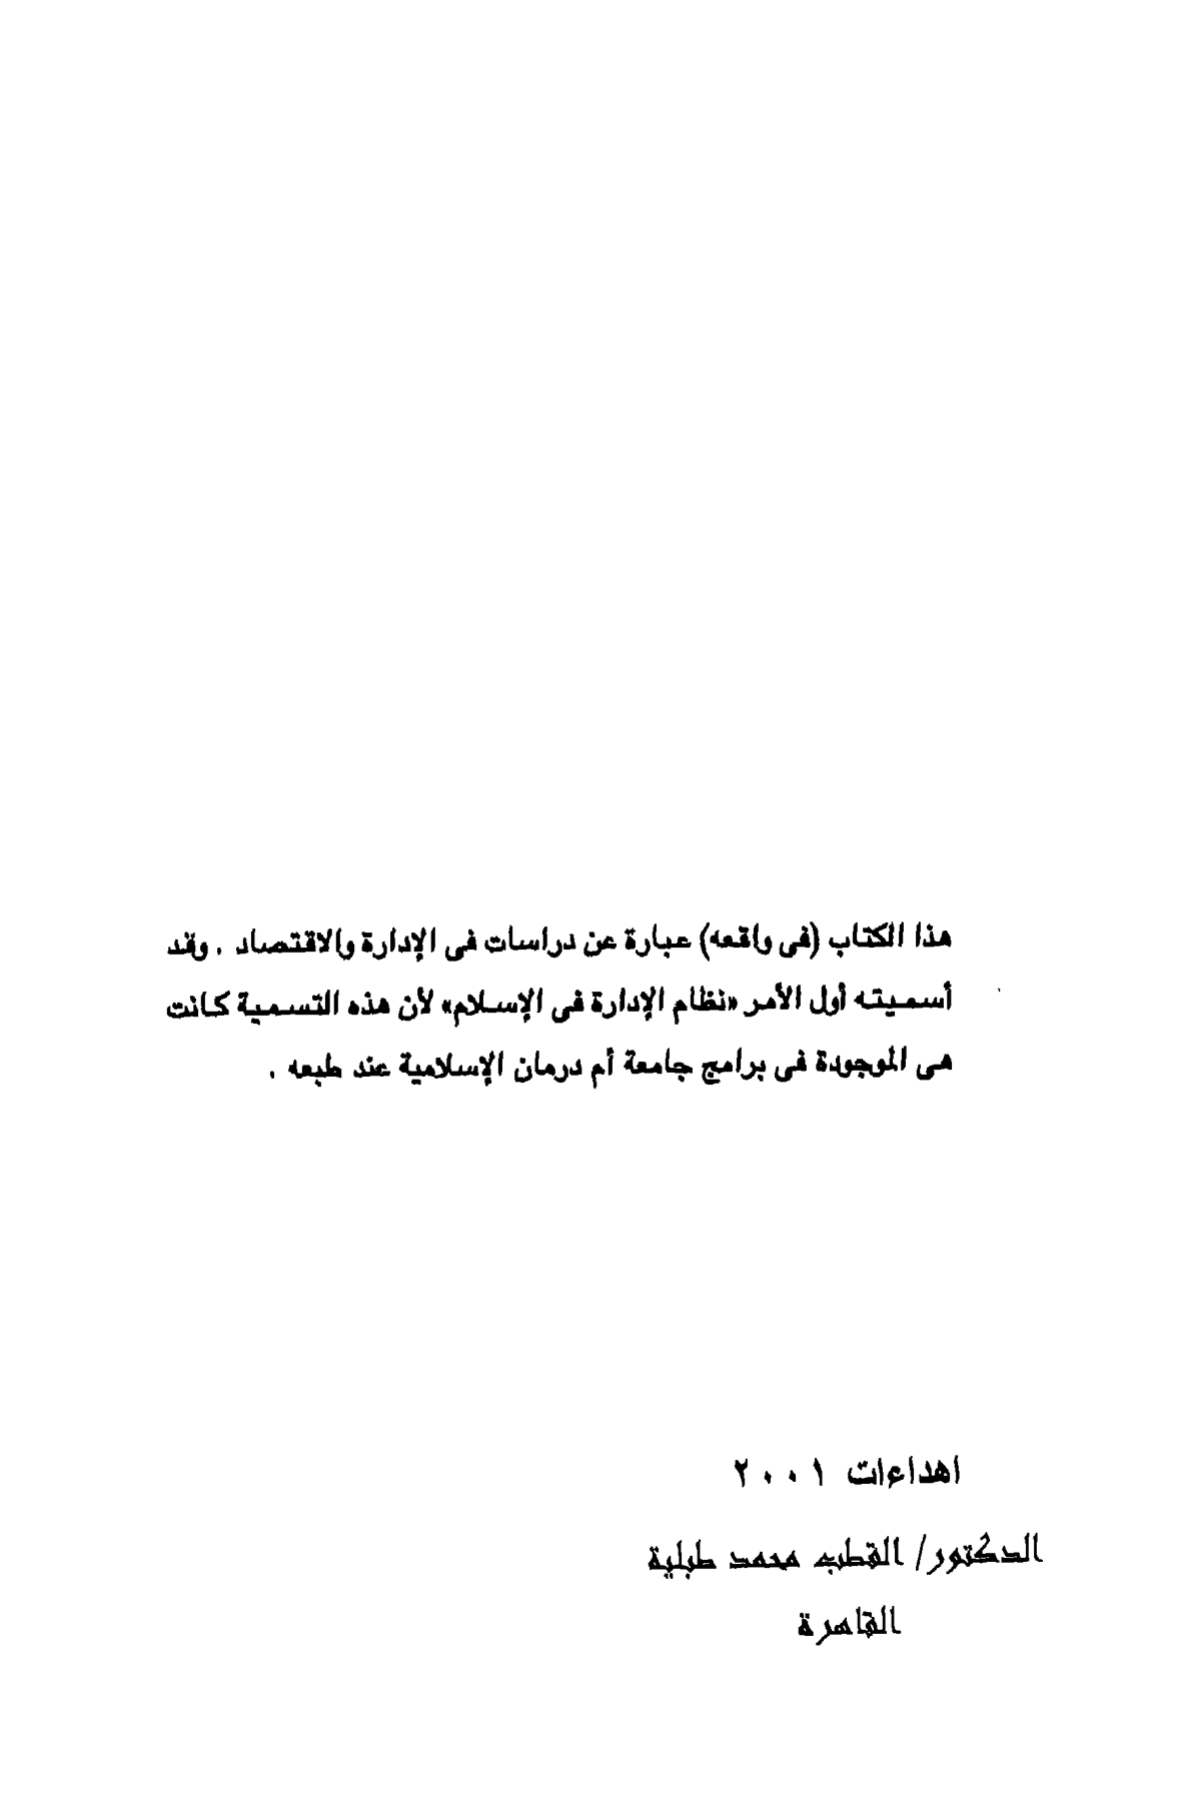 هذا الكتاب (فى واقعه) عبارة عن دراسات فى الإدارة والاقتصاد . وقد
أسميته أول الأمر «نظام الإدارة فى الإسلام» لأن هذه التسمية كانت
هى الموجودة فى برامج جامعة أم درمان الإسلامية عند طبعه .
اهداءات ٢٠٠١
الدكتور/ القطب محمد طبلية
القاهرة